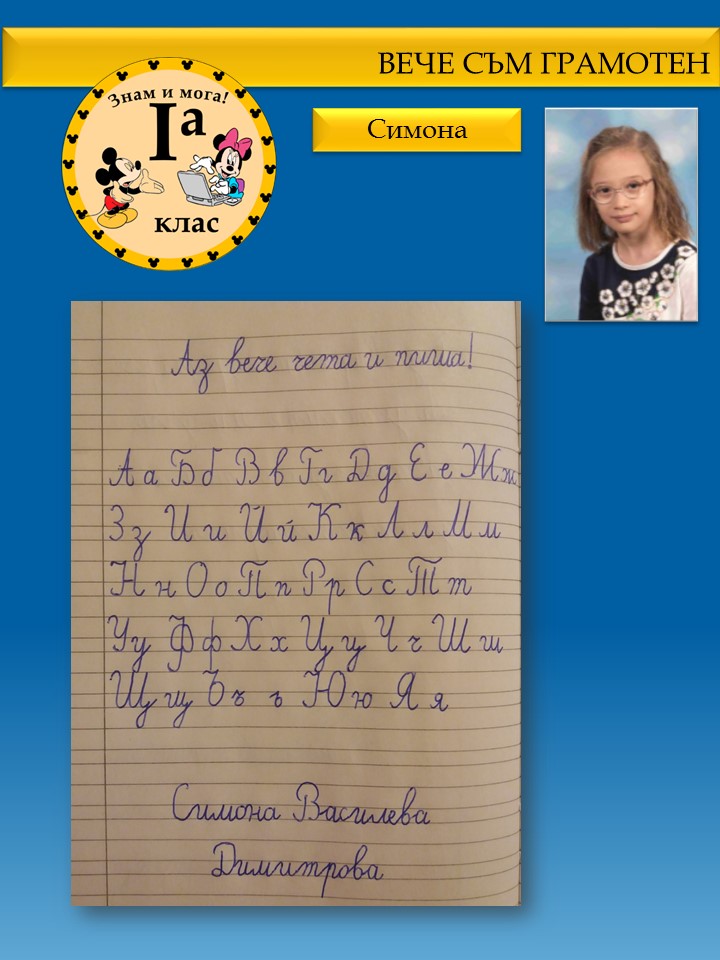 ВЕЧЕ СЪМ ГРАМОТЕН
Знам и мога!
Iа
клас
Симона
Аз вече чета и пиша!
А а Б б В в Г г Д д Е е Ж ж
З з И и Й й К к Л л М м
Н н О о П п Р р С с Т т
У у Ф ф Х х Ц ц Ч ч Ш ш
Щ щ Ъ ъ ь Ю ю Я я
Симона Василева
Димитрова